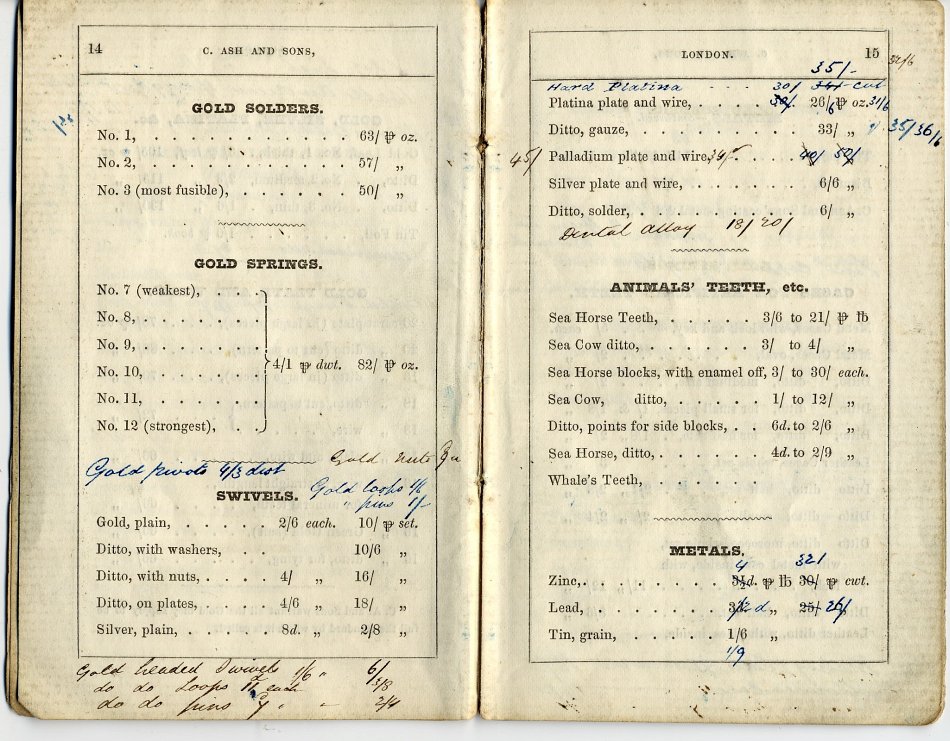 14 C. ASH AND SONS,
GOLD SOLDERS.
No. 1, . . . . . . . . . . . 63/ ⅌ oz.
No. 2, . . . . . . . . . . . 57/ „
No. 3 (most fusible), . . . . . . 50/ „
GOLD SPRINGS.
No. 7 (weakest), . .
No. 8, . . . . . .
No. 9, . . . . . .
No. 10, . . . . . . 4/1 ⅌ dwt. 82/ ⅌ oz.
No. 11, . . . . . .
No. 12 (strongest), . .
Gold nuts
Gold pivots 4/3
SWIVELS. Gold loops 1/6
„ pins 1/-
Gold, plain, . . . . . 2/6 each. 10/ ⅌ set.
Ditto, with washers, . . 10/6 „
Ditto, with nuts, . . . . 4/ „ 16/ „
Ditto, on plates, . . . . 4/6 „ 18/ „
Silver, plain, . . . . . 8d. „ 2/8 „
Gold headed Swivels 1/6 „ 6/
do do Loops 11 each 3/8
do do pins 7 „ 2/4
LONDON. 15
35/- 32/6
Hard Platina . . . 30/ 34/ cut
Platina plate and wire, . . . . . 30/ 26/6 ⅌ oz. 31/6
Ditto, gauze, . . . . . . . . 33/ „ 35/ 36/6
45/ Palladium plate and wire, 34/ . . . 40/ 50/
Silver plate and wire, . . . . . . 6/6 „
Ditto, solder, . . . . . . . . 6/ „
Dental Alloy 18/ 20/
ANIMALS' TEETH, etc.
Sea Horse Teeth, . . . . . . 3/6 to 21/ ⅌ lb
Sea Cow ditto, . . . . . . . 3/ to 4/ „
Sea Horse blocks, with enamel off, 3/ to 30/ each.
Sea Cow, ditto, . . . . . . 1/ to 12/ „
Ditto, points for side blocks, . . 6d. to 2/6 „
Sea Horse, ditto, . . . . . . 4d. to 2/9 „
Whale's Teeth, . . . . . . .
METALS.
4 32/
Zinc, . . . . . . . 3½d. ⅌ lb 30/ ⅌ cwt.
Lead, . . . . . . . 3½d „ 25/ 26/
Tin, grain, . . . . . 1/6 „
1/9